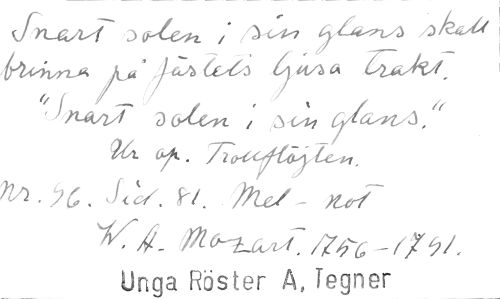 Snart solen i sin glans skall
brinna på fästets ljusa trakt.
"Snart solen i sin glans."
Ur op. Trollflöjten.
Nr. 96. Sid. 81. Mel - not
W. A. Mozart. 1756-1791.
Unga Röster A, Tegner